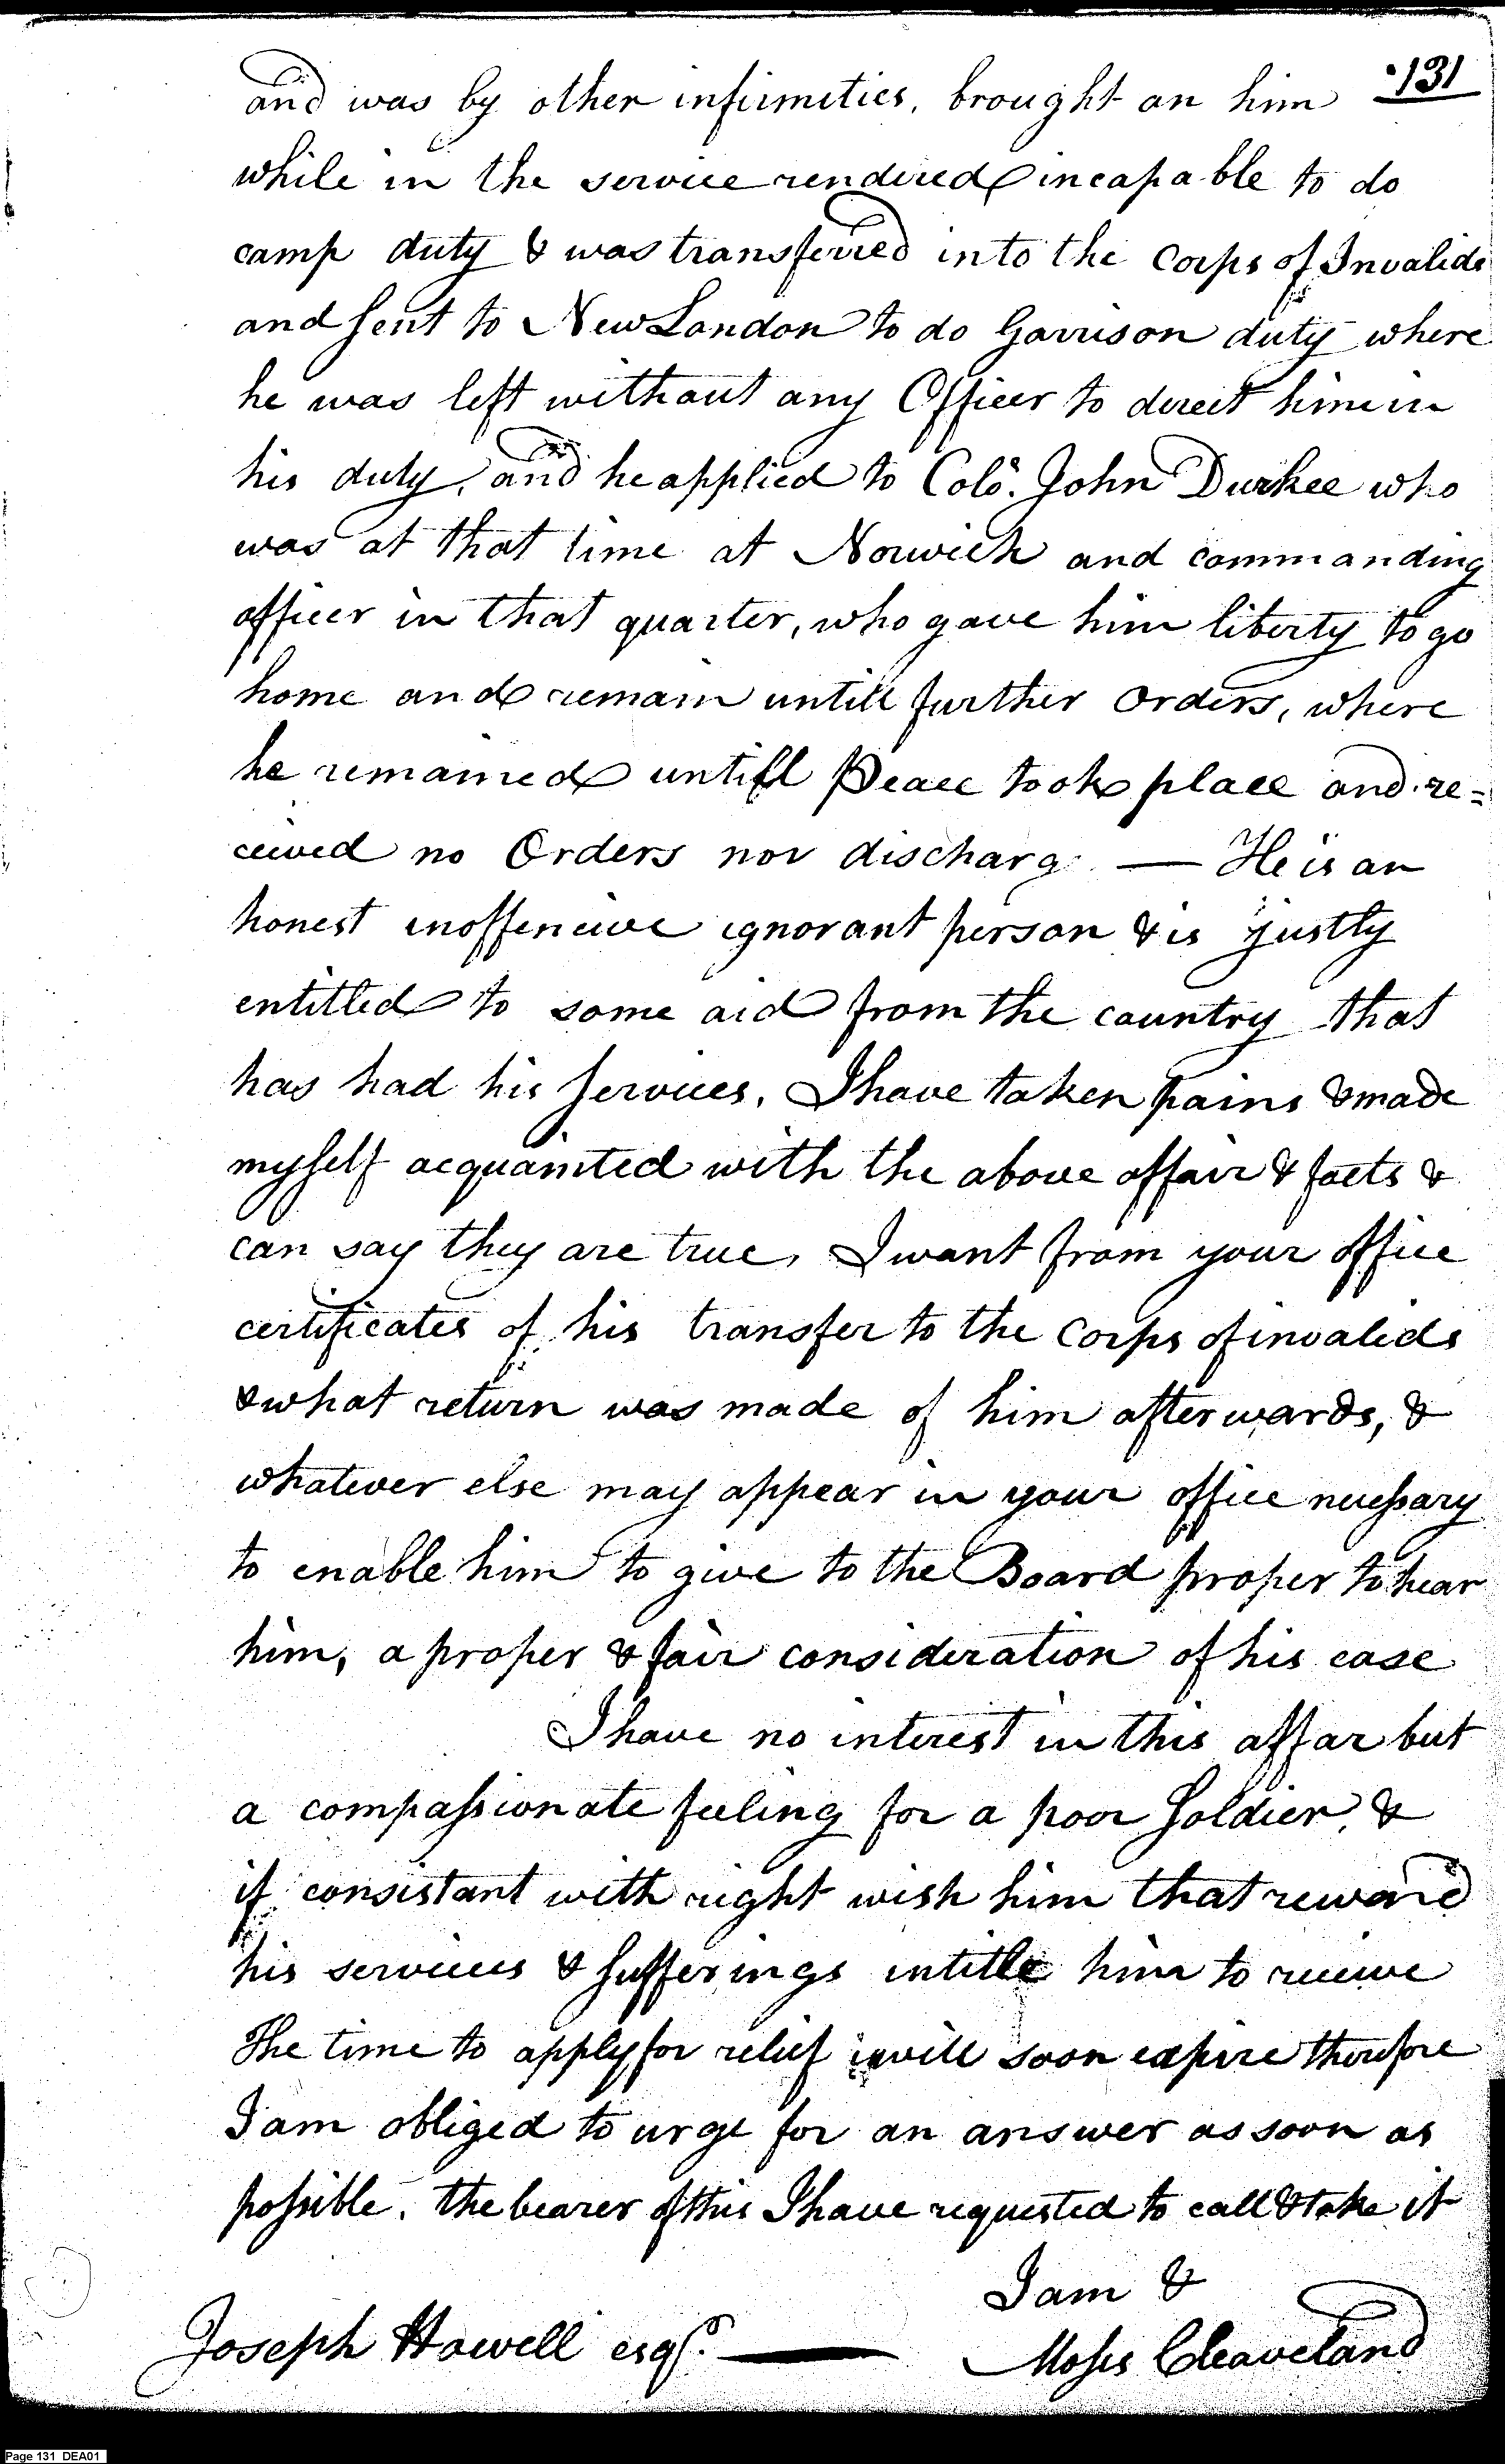 131
and was by other infirmities, brought on him
while in the service rendered incapable to do
camp duty & was transferred into the Corps of Invalids
and sent to New London to do Garrison duty where
he was left without any Officer to direct him in
his duty, and he applied to Colo. John Durkee who
was at that time at Norwich and commanding
officer in that quarter, who gave him liberty to go
home and remain untill further Orders, where
he remained untill Peace took place and re=
ceived no Orders nor discharg — He is an
honest inoffencive ignorant person & is justly
entitled to some aid from the country that
has had his services, I have taken pains & made
myself acquainted with the above affair & facts &
can say they are true, I want from your office
certificates of his transfer to the Corps of invalids
& what return was made of him afterwards, &
whatever else may appear in your office necessary
to enable him to give to the Board proper to hear
him, a proper & fair consideration of his case
I have no interest in this affar but
a compassionate feeling for a poor Soldier, &
if consistant with right wish him that reward
his services & sufferings intitle him to receive
The time to apply for relief will soon expire therefore
I am obliged to urge for an answer as soon as
possible, the bearer of this I have requested to call & take it
I am &
Joseph Howell esqr. — Moses Cleaveland
Page 131 DEA01